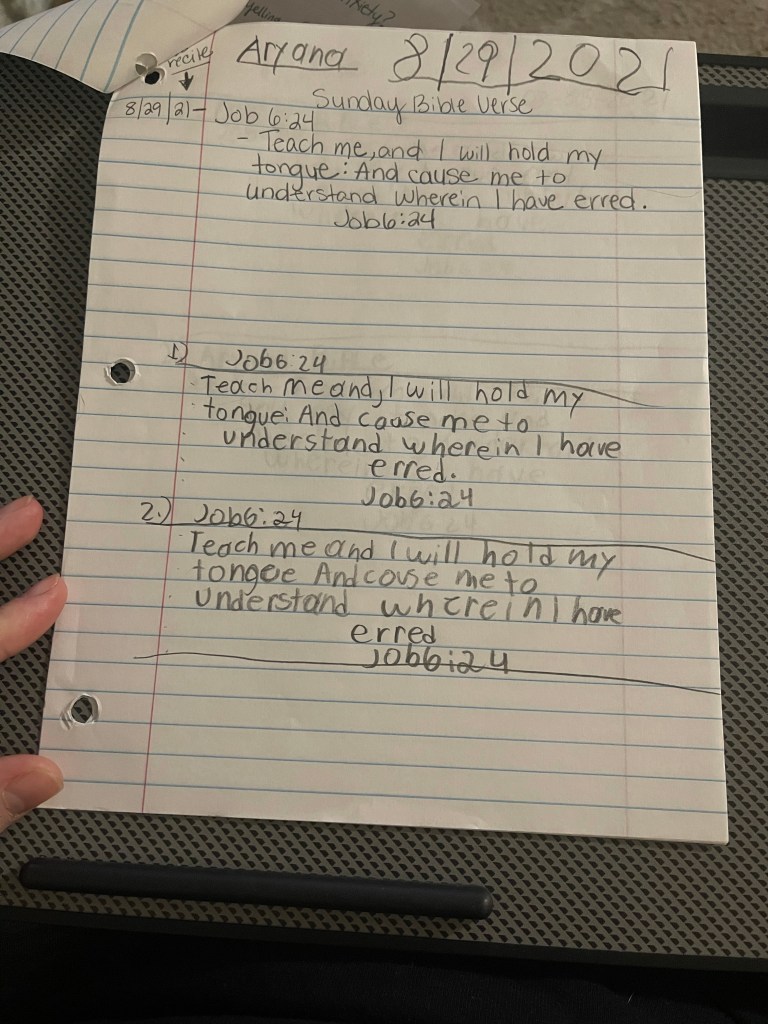 yelling
recite
Aryana 8/29/2021
Sunday Bible Verse
8/29/21 - Job 6:24
- Teach me, and I will hold my
tongue: And cause me to
understand wherein I have erred.
Job 6:24
1) Job 6:24
Teach me and, I will hold my
tongue: And cause me to
understand wherein I have
erred.
Job 6:24
2.) Job 6:24
Teach me and I will hold my
tongee And couse me to
understand wherein I have
erred
Job 6:24